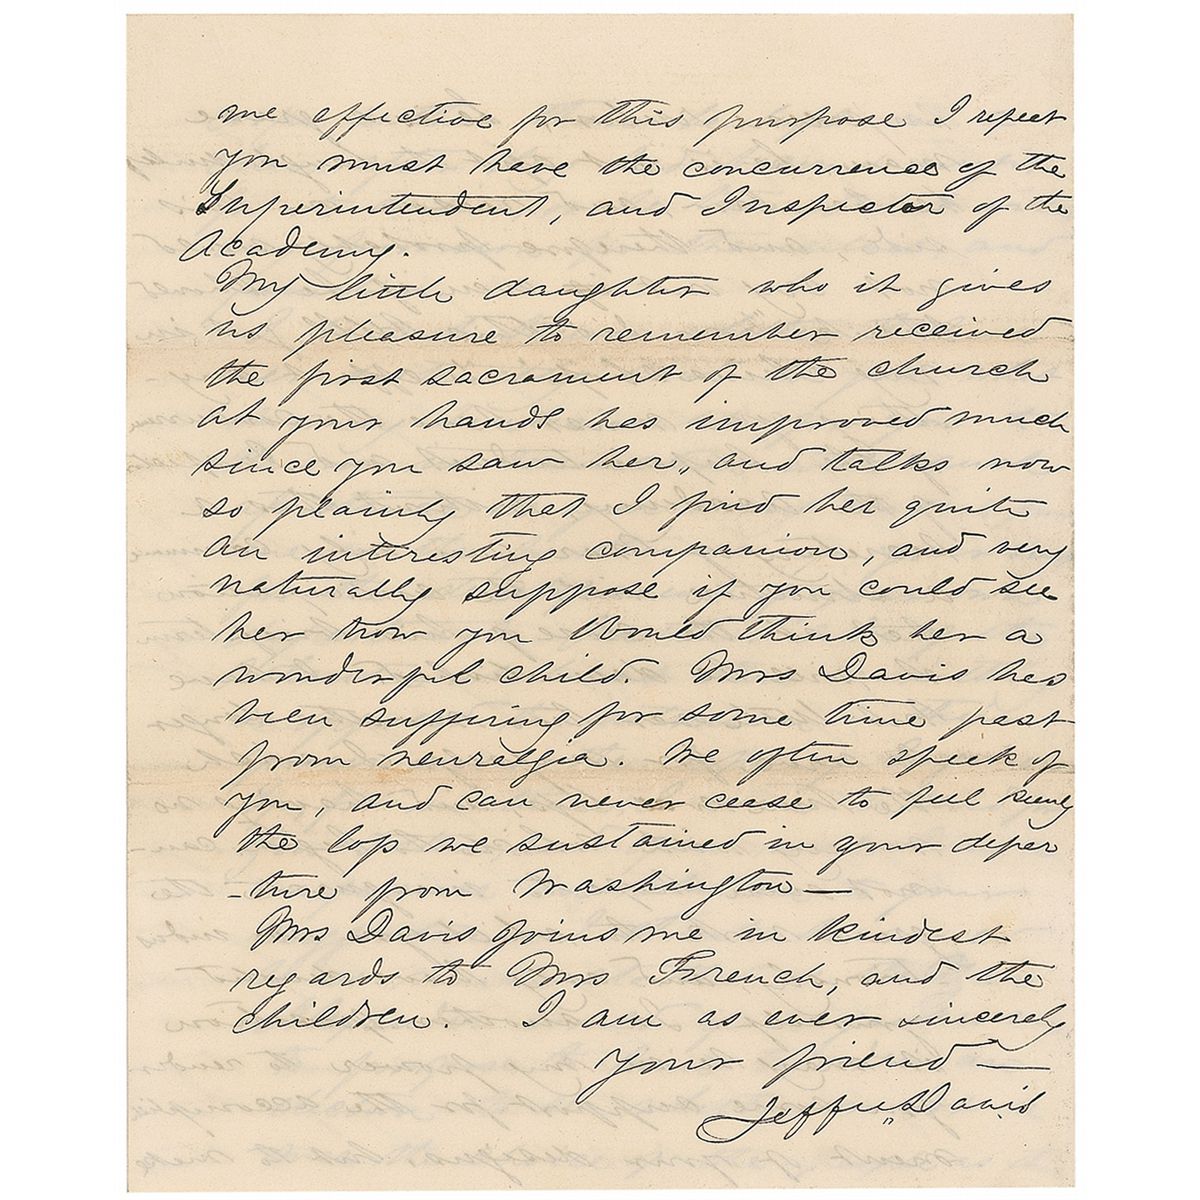 me effective for this purpose I repeat
you must have the concurrence of the
Superintendent, and Inspector of the
Academy.
My little daughter who it gives
us pleasure to remember received
the first sacrament of the church
at your hands has improved much
since you saw her, and talks now
so plainly that I find her quite
an interesting companion, and very
naturally suppose if you could see
her now you would think her a
wonderful child. Mrs Davis has
been suffering for some time past
from neuralgia. We often speak of
you, and can never cease to feel
the loss we sustained in your depar
-ture from Washington—
Mrs Davis joins me in kindest
regards to Mrs French, and the
children. I am as ever sincerely
your friend—
Jeffn Davis